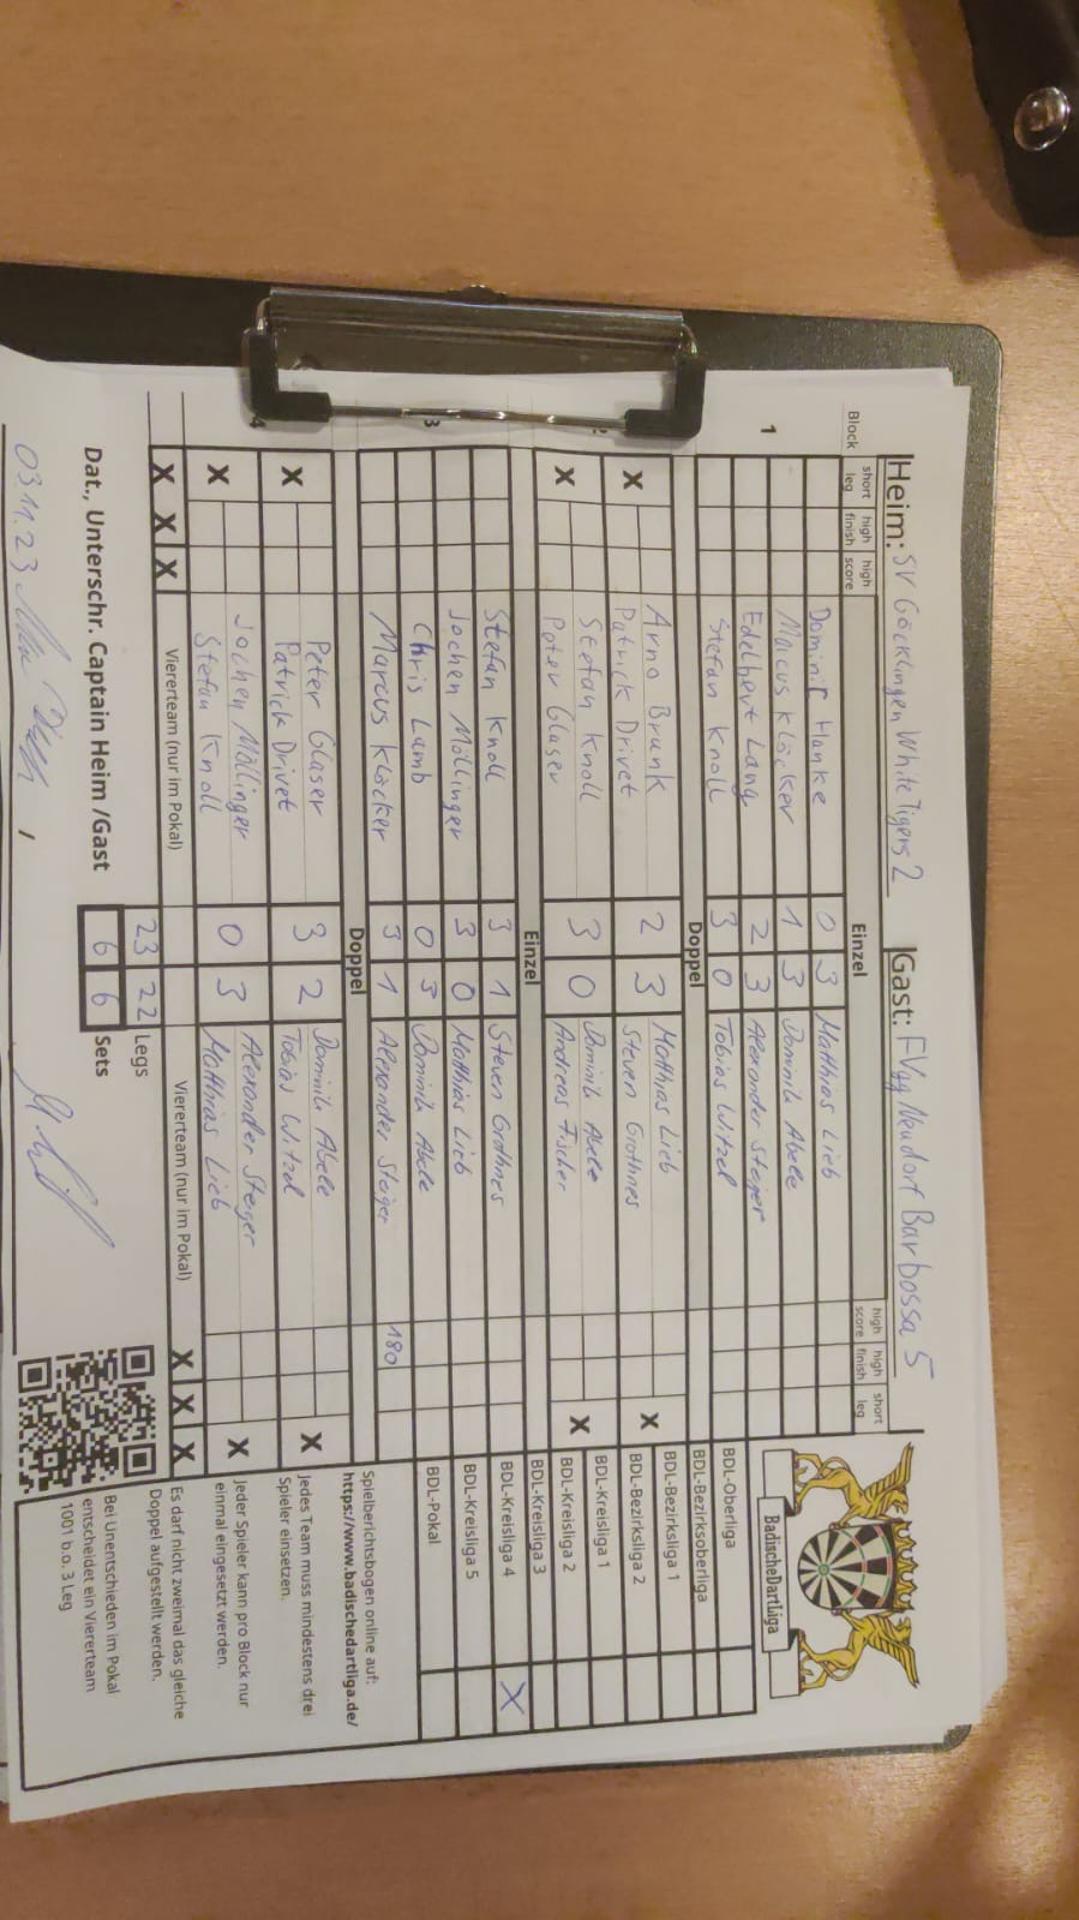 Heim: SV Göcklingen White Tigers 2 Gast: FVgg Neudorf Barbossa 5
Block short leg high finish high score Einzel high score high finish short leg
1
Dominic Hanke 0 3 Matthias Lieb
Marcus Klöcker 1 3 Dominik Abele
Edelbert Lang 2 3 Alexander Steiger
Stefan Knoll 3 0 Tobias Witzel
Doppel
X Arno Brunk 2 3 Matthias Lieb X
Patrick Drivet Steven Grothnes
X Stefan Knoll 3 0 Dominik Abele X
Peter Glaser Andreas Fischer
Einzel
3
Stefan Knoll 3 1 Steven Grothnes
Jochen Möllinger 3 0 Matthias Lieb
Chris Lamb 0 3 Dominik Abele
Marcus Klöcker 3 1 Alexander Steiger 180
Doppel
4
X Peter Glaser 3 2 Dominik Abele X
Patrick Drivet Tobias Witzel
X Jochen Möllinger 0 3 Alexander Steiger X
Stefan Knoll Matthias Lieb
X X X Viererteam (nur im Pokal) Viererteam (nur im Pokal) X X X
23 22 Legs
Dat., Unterschr. Captain Heim /Gast 6 6 Sets
03.11.23
BadischeDartLiga
BDL-Oberliga
BDL-Bezirksoberliga
BDL-Bezirksliga 1
BDL-Bezirksliga 2
BDL-Kreisliga 1
BDL-Kreisliga 2
BDL-Kreisliga 3
BDL-Kreisliga 4 X
BDL-Kreisliga 5
BDL-Pokal
Spielberichtsbogen online auf:
https://www.badischedartliga.de/
Jedes Team muss mindestens drei
Spieler einsetzen.
Jeder Spieler kann pro Block nur
einmal eingesetzt werden.
Es darf nicht zweimal das gleiche
Doppel aufgestellt werden.
Bei Unentschieden im Pokal
entscheidet ein Viererteam
1001 b.o. 3 Leg